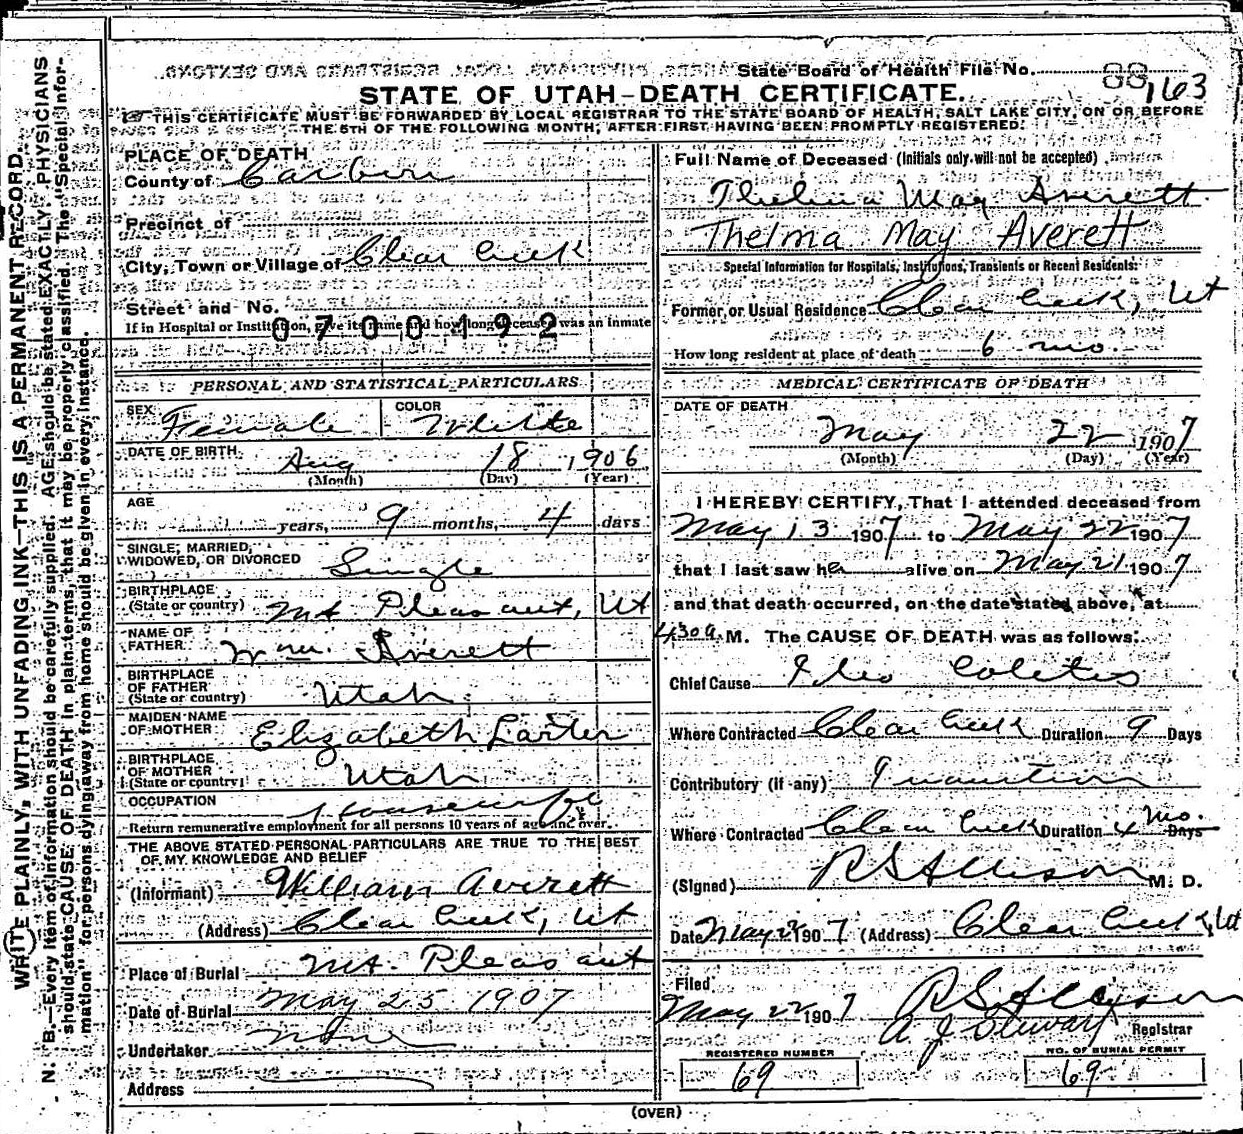 State Board of Health File No. 88163
STATE OF UTAH—DEATH CERTIFICATE.
THIS CERTIFICATE MUST BE FORWARDED BY LOCAL REGISTRAR TO THE STATE BOARD OF HEALTH, SALT LAKE CITY, ON OR BEFORE
THE 5TH OF THE FOLLOWING MONTH, AFTER FIRST HAVING BEEN PROMPTLY REGISTERED.
WRITE PLAINLY, WITH UNFADING INK—THIS IS A PERMANENT RECORD.
N. B.—Every item of information should be carefully supplied. AGE should be stated EXACTLY. PHYSICIANS
should state CAUSE OF DEATH in plain terms, that it may be properly classified. The "Special Infor-
mation" for persons dying away from home should be given in every instance.
PLACE OF DEATH
County of Carbon
Precinct of
City, Town or Village of Clear Creek
Street and No.
If in Hospital or Institution, give its name and how long deceased was an inmate
0700492
PERSONAL AND STATISTICAL PARTICULARS
SEX Female COLOR White
DATE OF BIRTH Aug 18, 1906
(Month) (Day) (Year)
AGE
years, 9 months, 4 days
SINGLE, MARRIED,
WIDOWED, OR DIVORCED Single
BIRTHPLACE
(State or country) Mt Pleasant, Ut
NAME OF
FATHER Wm. Averett
BIRTHPLACE
OF FATHER
(State or country) Utah
MAIDEN NAME
OF MOTHER Elizabeth Larter
BIRTHPLACE
OF MOTHER
(State or country) Utah
OCCUPATION Housewife
Return remunerative employment for all persons 10 years of age and over.
THE ABOVE STATED PERSONAL PARTICULARS ARE TRUE TO THE BEST
OF MY KNOWLEDGE AND BELIEF
(Informant) William Averett
(Address) Clear Creek, Ut
Place of Burial Mt. Pleasant
Date of Burial May 25 1907
Undertaker None
Address
Full Name of Deceased (Initials only will not be accepted)
Thelma May Averett
Thelma May Averett
Special Information for Hospitals, Institutions, Transients or Recent Residents:
Former or Usual Residence Clear Creek, Ut
How long resident at place of death 6 mo.
MEDICAL CERTIFICATE OF DEATH
DATE OF DEATH
May 22 1907
(Month) (Day) (Year)
I HEREBY CERTIFY, That I attended deceased from
May 13 1907 to May 22 1907
that I last saw her alive on May 21 1907
and that death occurred, on the date stated above, at
430 a. M. The CAUSE OF DEATH was as follows:
Chief Cause Ileo Coletis
Where Contracted Clear Creek Duration 9 Days
Contributory (if any) Inanition
Where Contracted Clear Creek Duration 4 Mo. Days
(Signed) R S Allison M. D.
Date May 22 1907 (Address) Clear Creek, Ut
Filed
May 22 1907 R S Allison
A. J. Stewart Registrar
REGISTERED NUMBER
69
NO. OF BURIAL PERMIT
69
(OVER)